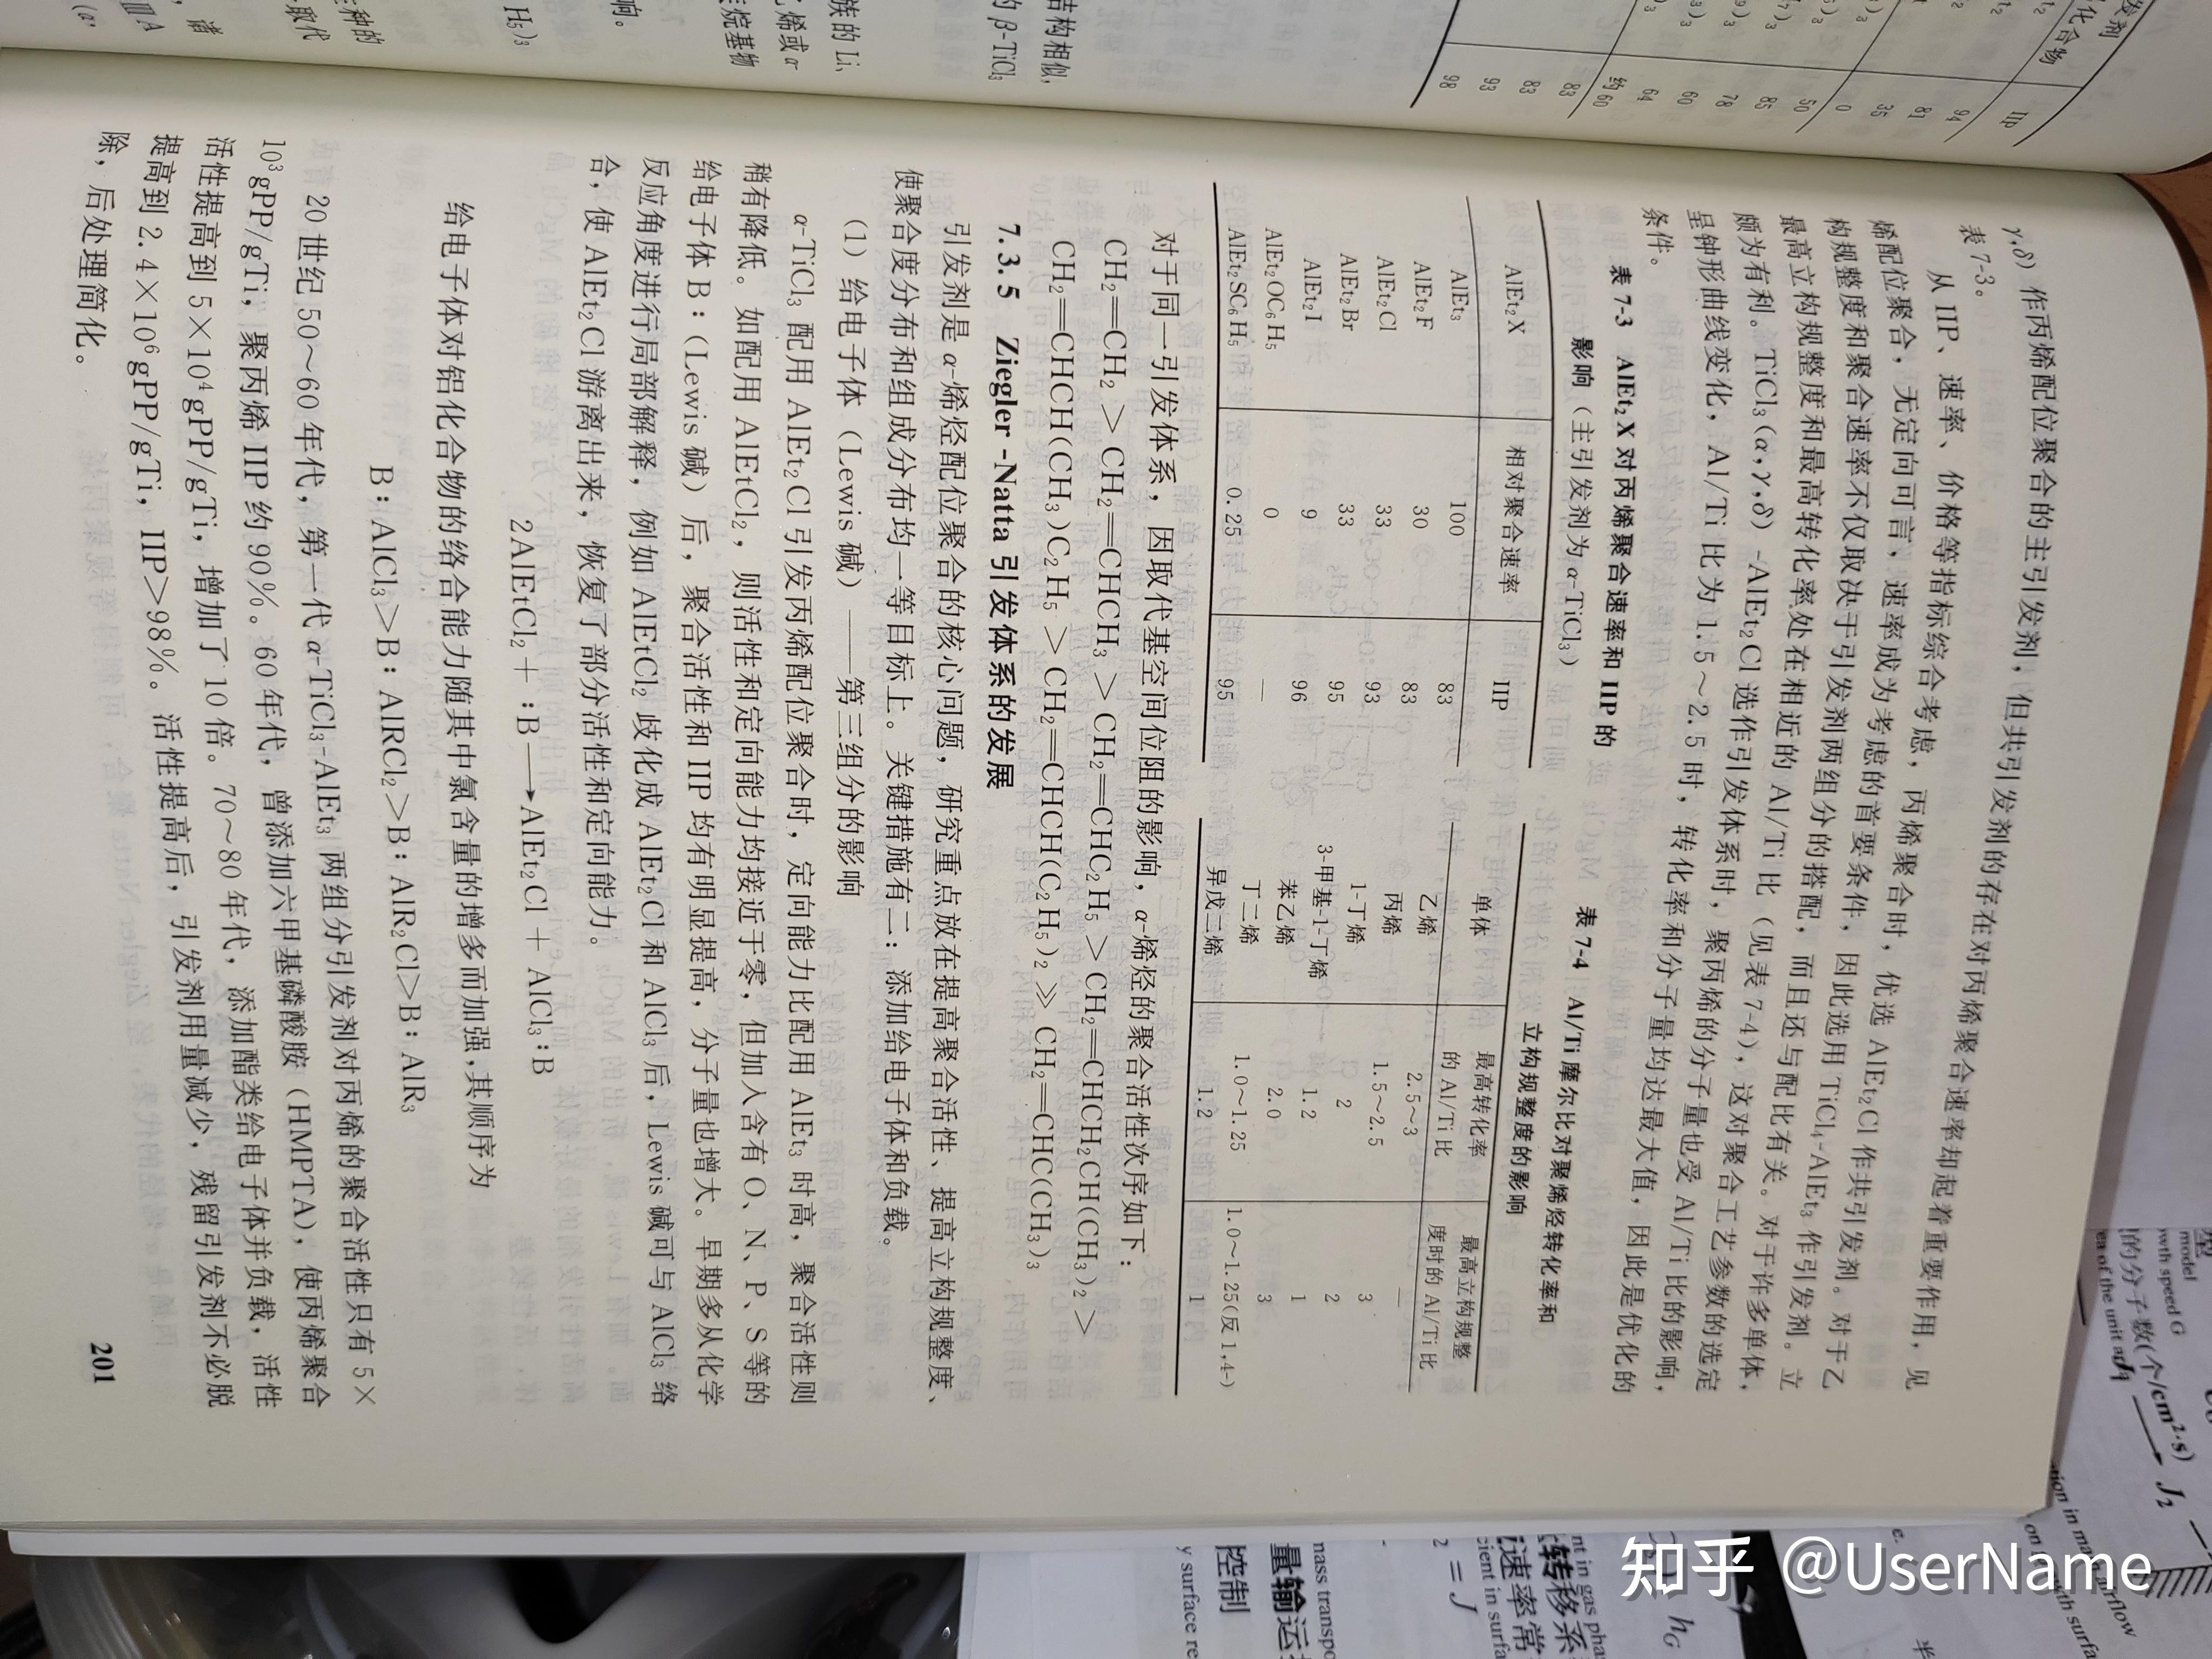 γ,δ) 作丙烯配位聚合的主引发剂，但共引发剂的存在对丙烯聚合速率却起着重要作用，见
表 7-3。
从 IIP、速率、价格等指标综合考虑，丙烯聚合时，优选 AlEt₂Cl 作共引发剂。对于乙
烯配位聚合，无定向可言，速率成为考虑的首要条件，因此选用 TiCl₄-AlEt₃ 作引发剂。立
构规整度和聚合速率不仅取决于引发剂两组分的搭配，而且还与配比有关。对于许多单体，
最高立构规整度和最高转化率处在相近的 Al/Ti 比（见表 7-4），这对聚合工艺参数的选定
颇为有利。TiCl₃(α,γ,δ) -AlEt₂Cl 选作引发体系时，聚丙烯的分子量也受 Al/Ti 比的影响，
呈钟形曲线变化，Al/Ti 比为 1.5～2.5 时，转化率和分子量均达最大值，因此是优化的
条件。
表 7-3 AlEt₂X 对丙烯聚合速率和 IIP 的
影响（主引发剂为 α-TiCl₃）
AlEt₂X 相对聚合速率 IIP
AlEt₃ 100 83
AlEt₂F 30 83
AlEt₂Cl 33 93
AlEt₂Br 33 95
AlEt₂I 9 96
AlEt₂OC₆H₅ 0 —
AlEt₂SC₆H₅ 0.25 95
表 7-4 Al/Ti 摩尔比对聚烯烃转化率和
立构规整度的影响
单体 最高转化率的 Al/Ti 比 最高立构规整度时的 Al/Ti 比
乙烯 2.5～3 —
丙烯 1.5～2.5 3
1-丁烯 2 2
3-甲基-1-丁烯 1.2 1
苯乙烯 2.0 3
丁二烯 1.0～1.25 1.0～1.25(反 1,4-)
异戊二烯 1.2 1
对于同一引发体系，因取代基空间位阻的影响，α-烯烃的聚合活性次序如下：
CH₂==CH₂ > CH₂==CHCH₃ > CH₂==CHC₂H₅ > CH₂==CHCH₂CH(CH₃)₂ >
CH₂==CHCH(CH₃)C₂H₅ > CH₂==CHCH(C₂H₅)₂ ≫ CH₂==CHC(CH₃)₃
7.3.5 Ziegler-Natta 引发体系的发展
引发剂是 α-烯烃配位聚合的核心问题，研究重点放在提高聚合活性、提高立构规整度、
使聚合度分布和组成分布均一等目标上。关键措施有二：添加给电子体和负载。
（1）给电子体（Lewis 碱）——第三组分的影响
α-TiCl₃ 配用 AlEt₂Cl 引发丙烯配位聚合时，定向能力比配用 AlEt₃ 时高，聚合活性则
稍有降低。如配用 AlEtCl₂，则活性和定向能力均接近于零，但加入含有 O、N、P、S 等的
给电子体 B∶(Lewis 碱）后，聚合活性和 IIP 均有明显提高，分子量也增大。早期多从化学
反应角度进行局部解释，例如 AlEtCl₂ 歧化成 AlEt₂Cl 和 AlCl₃ 后，Lewis 碱可与 AlCl₃ 络
合，使 AlEt₂Cl 游离出来，恢复了部分活性和定向能力。
2AlEtCl₂ + ∶B⟶AlEt₂Cl + AlCl₃∶B
给电子体对铝化合物的络合能力随其中氯含量的增多而加强，其顺序为
B∶AlCl₃>B∶AlRCl₂>B∶AlR₂Cl>B∶AlR₃
20 世纪 50～60 年代，第一代 α-TiCl₃-AlEt₃ 两组分引发剂对丙烯的聚合活性只有 5×
10³gPP/gTi，聚丙烯 IIP 约 90%。60 年代，曾添加六甲基磷酸胺（HMPTA），使丙烯聚合
活性提高到 5×10⁴gPP/gTi，增加了 10 倍。70～80 年代，添加酯类给电子体并负载，活性
提高到 2.4×10⁶gPP/gTi，IIP>98%。活性提高后，引发剂用量减少，残留引发剂不必脱
除，后处理简化。
201
知乎 @UserName